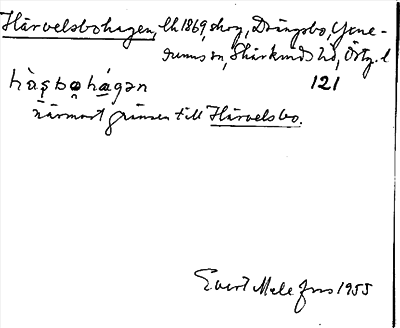 Härvelsbohagen, lh 1869, skog, Drängsbo, Gene-
rums sn, Skärkinds hd, Östg. l
hàṣbo̯hágən 121
närmast gränsen till Härvelsbo.
Evert Melefors 1955